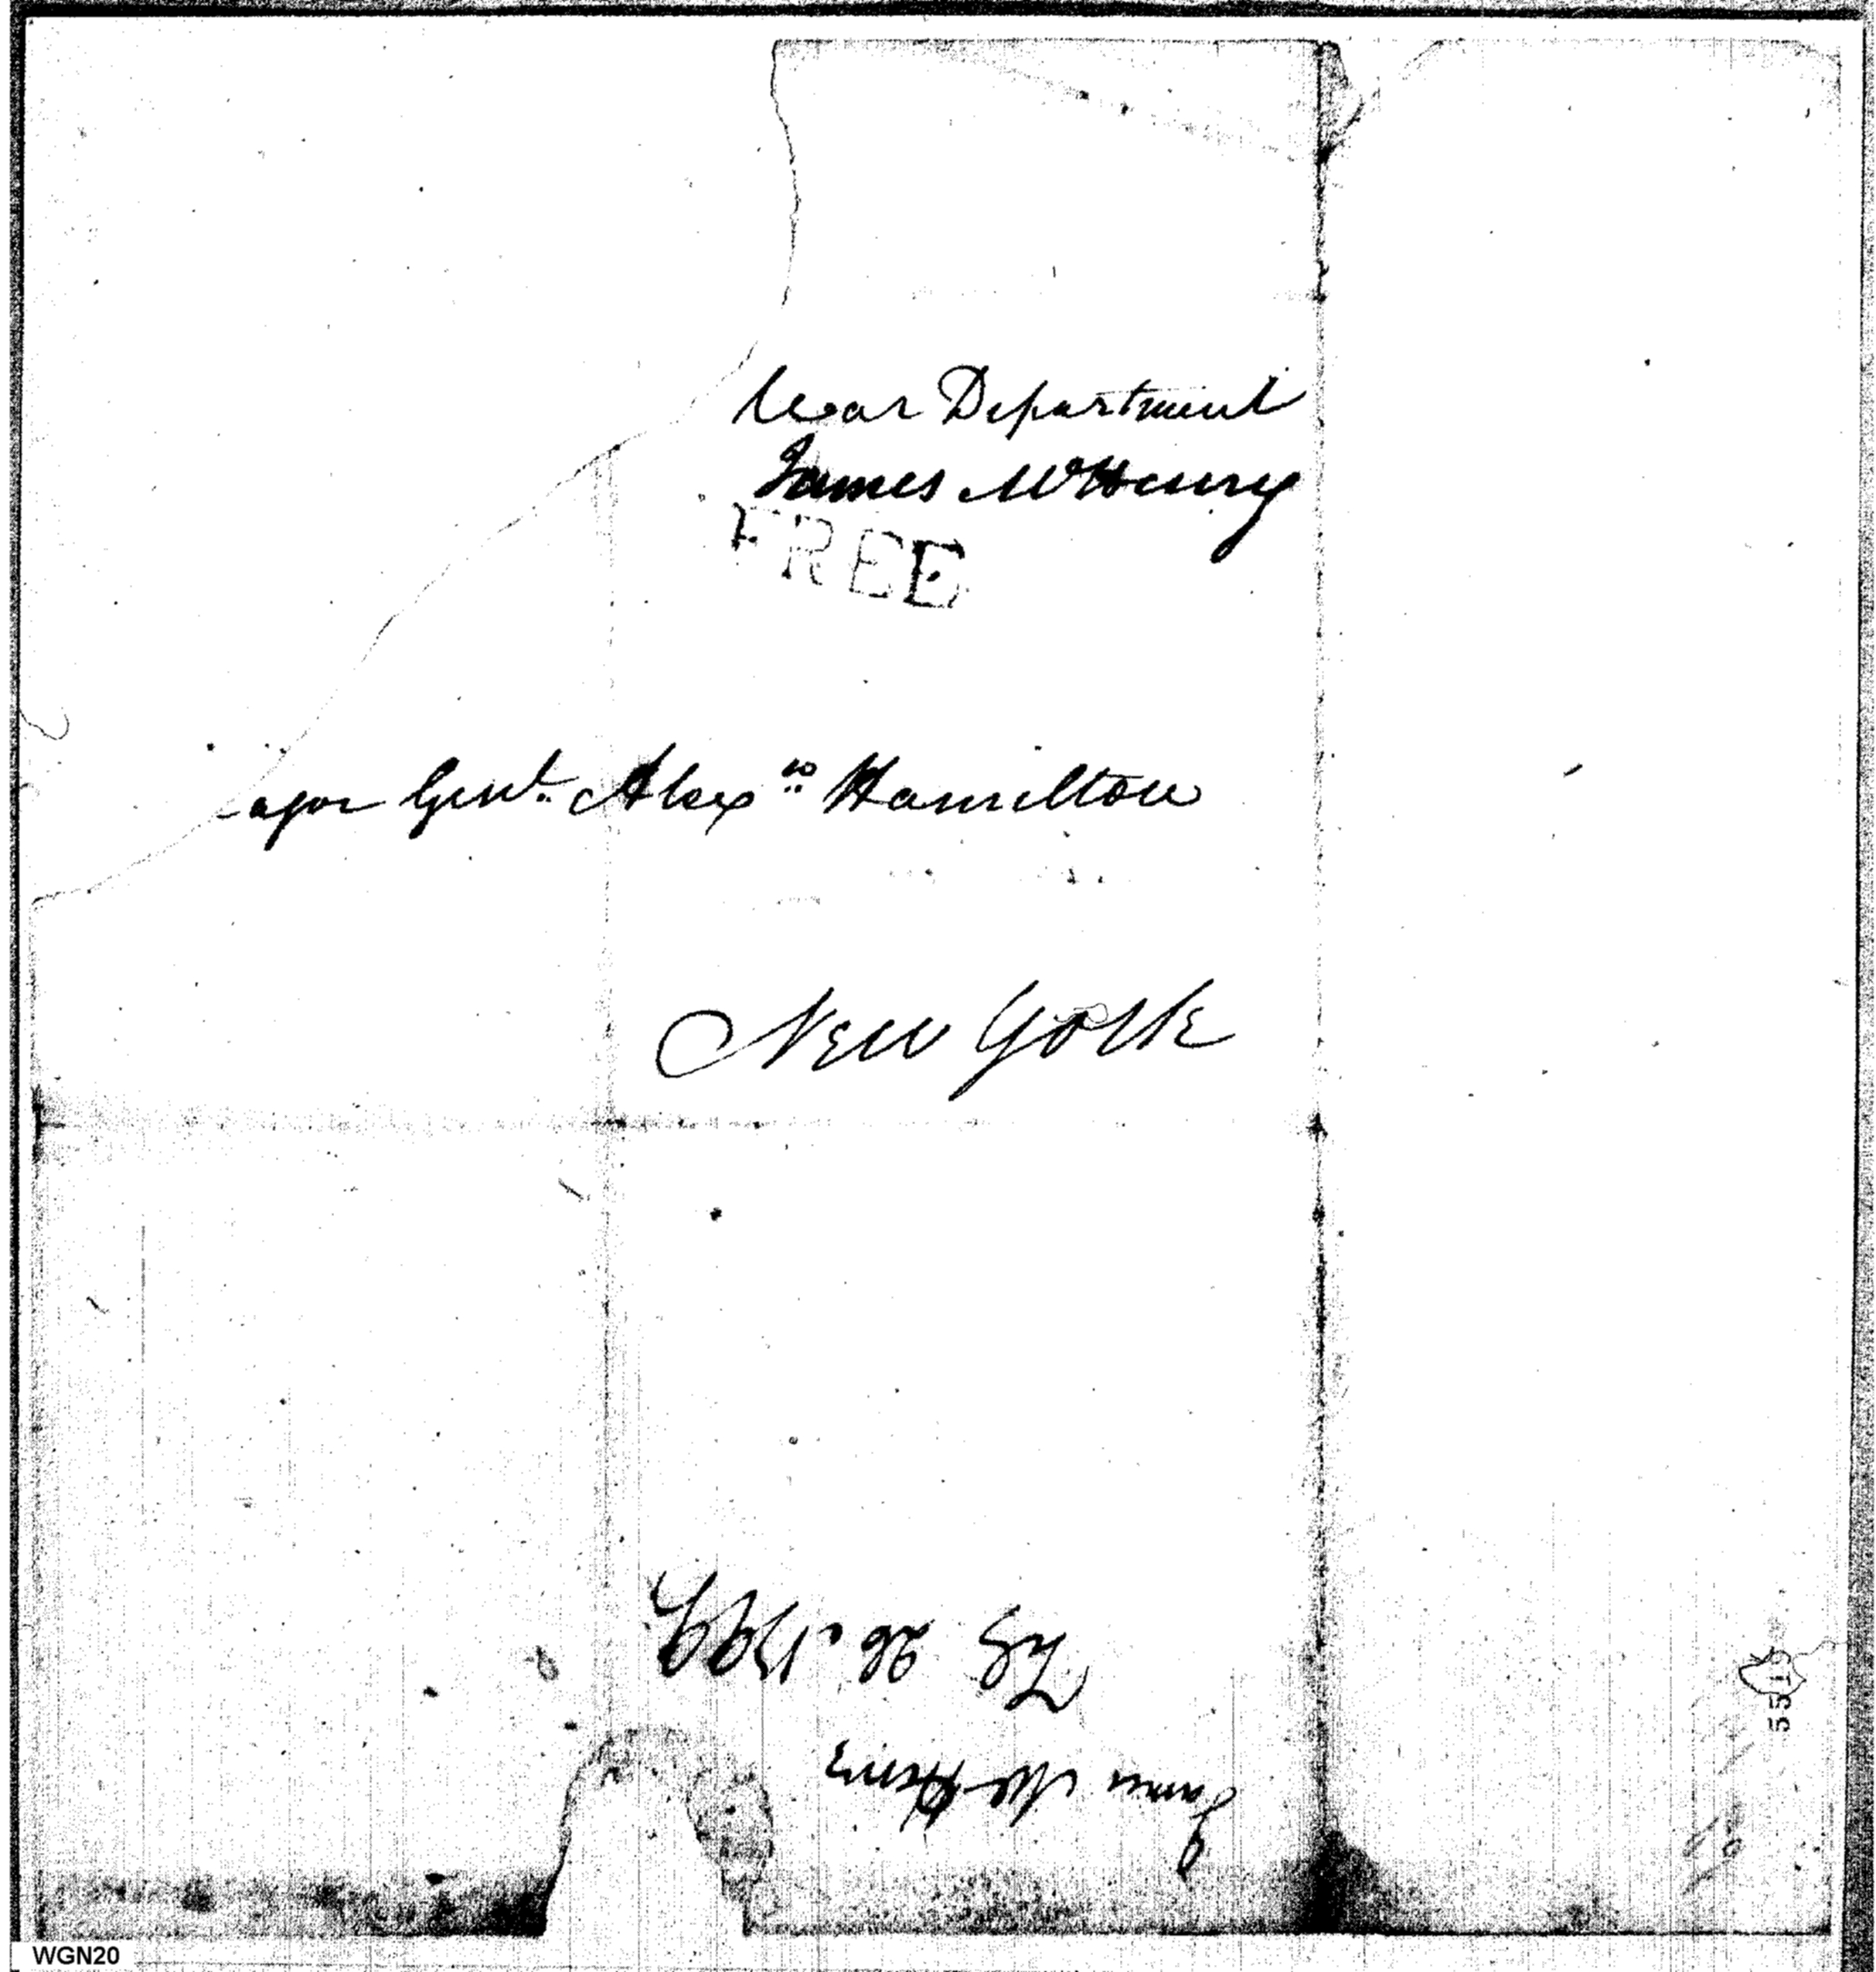 War Department
James McHenry
FREE
ajor Genl. Alexr. Hamilton
New York
Feb 26. 1799
James McHenry
5519
WGN20